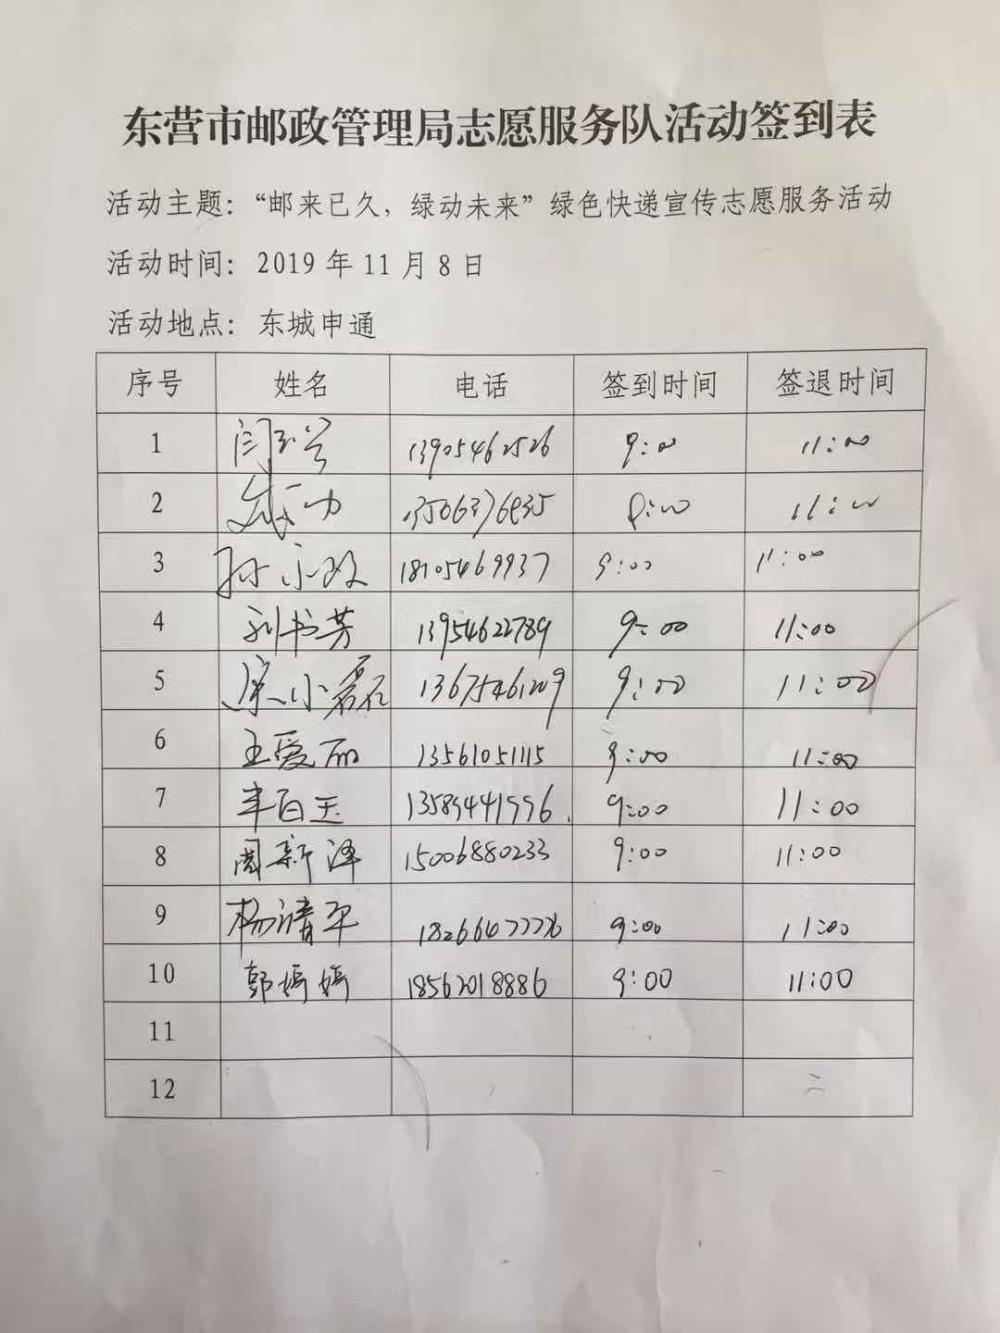 东营市邮政管理局志愿服务队活动签到表
活动主题：“邮来已久，绿动未来”绿色快递宣传志愿服务活动
活动时间：2019年11月8日
活动地点：东城申通
序号 姓名 电话 签到时间 签退时间
1 13905462526 9:00 11:00
2 11:00
3 孙 18105469937 9:00 11:00
4 刘书芳 13954622789 9:00 11:00
5 宋小磊 13675461209 9:00 11:00
6 王爱丽 13561051115 9:00 11:00
7 丰百玉 9:00 11:00
8 周新泽 15006880233 9:00 11:00
9 杨清平 9:00 11:00
10 郭嫣嫣 18562018886 9:00 11:00
11
12